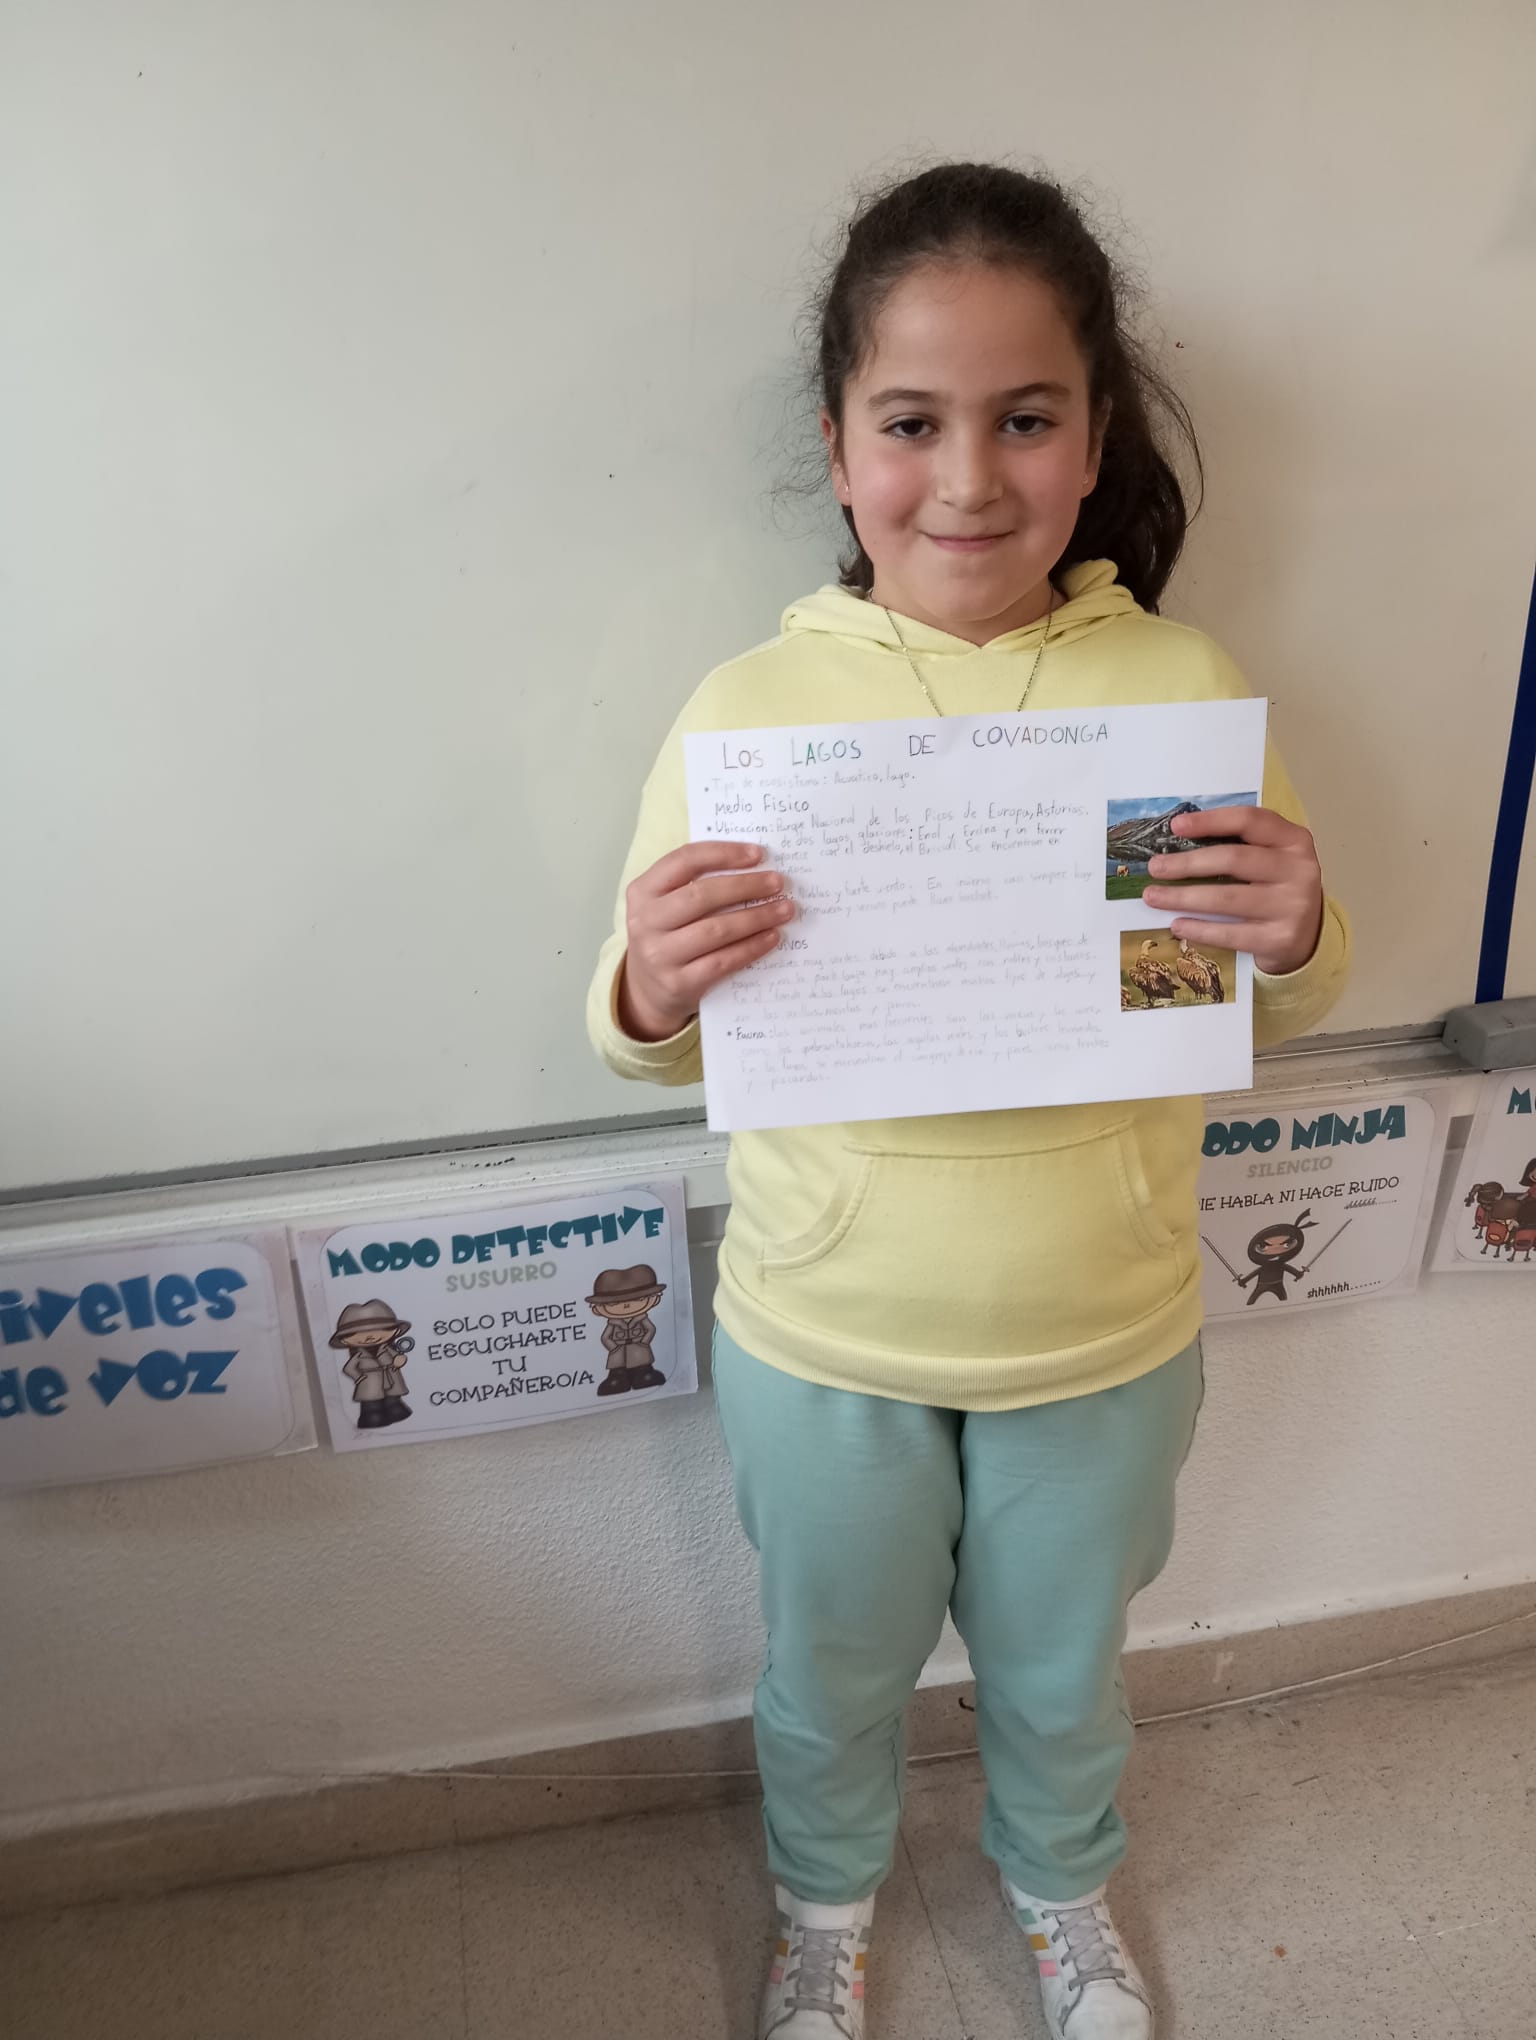 LOS LAGOS DE COVADONGA
• Tipo de ecosistema: Acuatico, lago.
Medio Físico
• Ubicacion: Parque Nacional de los Picos de Europa, Asturias.
de dos lagos glaciares: Enol y Ercina y un tercer
aparece con el deshielo, el Bricial. Se encuentran en
Nieblas y fuerte viento. En invierno casi siempre hay
primavera y verano puede llover bastante.
VIVOS
muy verdes debido a las abundantes lluvias, bosques de
hayas y en la parte baja hay amplios valles con robles y castaños.
En el fondo de los lagos se encuentran muchos tipos de algas y
en las orillas, mentas y juncos.
• Fauna: Los animales mas frecuentes son las vacas y las aves
como los quebrantahuesos, las aguilas reales y los buitres leonados.
En los lagos se encuentran el cangrejo de rio y peces como truchas
y piscardos.
iveles
de voz
MODO DETECTIVE
SUSURRO
SOLO PUEDE
ESCUCHARTE
TU
COMPAÑERO/A
ODO NINJA
SILENCIO
IE HABLA NI HACE RUIDO
shhhhhh.......
shhhhhh.......
M